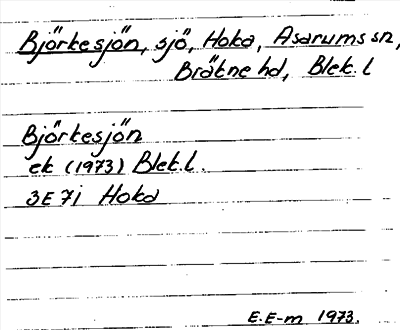 Björkesjön, sjö, Hoka, Asarums sn,
Bräkne hd, Blek. l
Björkesjön
ek (1973) Blek. l.
3E 7i Hoka
E.E-m 1973.